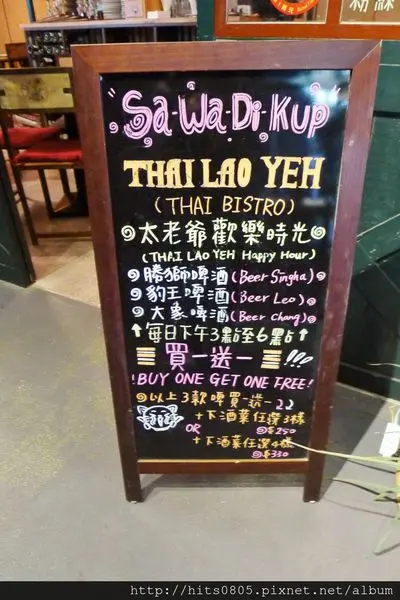 "Sa-Wa-Di-Kup"
THAI LAO YEH
(THAI BISTRO)
太老爺歡樂時光
(THAI LAO YEH Happy Hour)
勝獅啤酒(Beer Singha)
豹王啤酒(Beer Leo)
大象啤酒(Beer Chang)
↑每日下午3點至6點↑
買一送一!!!
!BUY ONE GET ONE FREE!
以上3款啤買一送一
+下酒菜任選3樣
$250
OR
+下酒菜任選4樣
$330
http://hits0805.pixnet.net/album